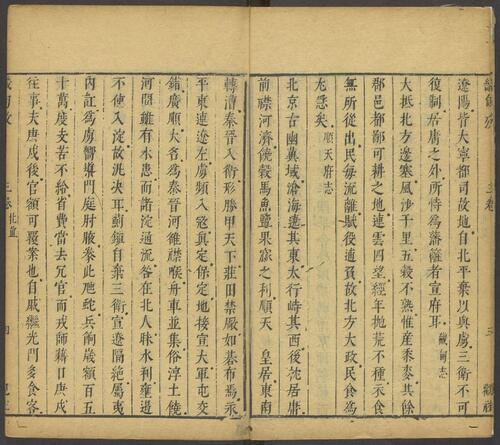 遼陽皆大寧都司故地自北平棄以與虜三衛不可
復制居庸之外所恃爲藩籬者宣府耳
大抵北方邊寒風沙千里五穀不熟惟產黍麥其餘
郡邑都鄙可耕之地連雲四望經年拋荒不種衣食
無所從出民每流離賦役逋負故北方大政民食爲
尤急矣 順天府志
北京古幽冀域滄海遶其東太行峙其西後沈居庸
前襟河濟饒穀馬魚鹽果蓏之利順天 皇居東南
轉漕秦晉入衛形勝甲天下莊田禁嚴如碁布焉永
平東連遼左虜頻入寇眞定保定地接宣大軍屯交
錯廣順大名爲秦晉河維襟喉舟車並集俗淳土饒
河間雖有水患而諾淀通流各在北人昧水利壅過
不使入淀故泆决耳薊鎮自棄三衛宣遼隔絶屬夷
內訌爲虜嚮導門庭肘腋参此虺蛇兵餉歲額百五
十萬度支苦不給省費當去冗官而戎師藉口庚戌
往事夫庚戌後官額可覆案也自戚繼光門多食客
三卷
北直
四